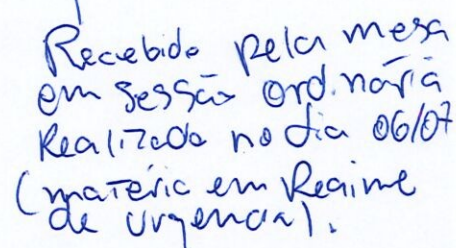 Recebido pela mesa
em sessão ordinária
Realizada no dia 06/07
(matéria em Regime
de urgencia).